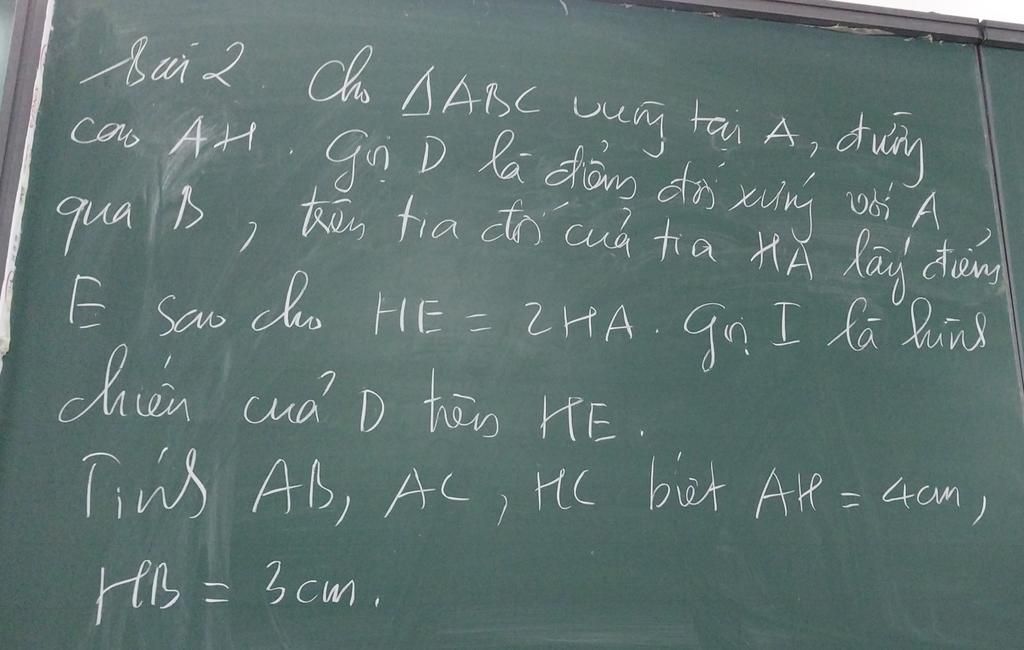 Bài 2 Cho ΔABC vuông tại A, đường
cao AH. Gọi D là điểm đối xứng với A
qua B, trên tia đối của tia HA lấy điểm
E sao cho HE = 2HA. Gọi I là hình
chiếu của D trên HE.
Tính AB, AC, HC biết AH = 4cm,
HB = 3cm.